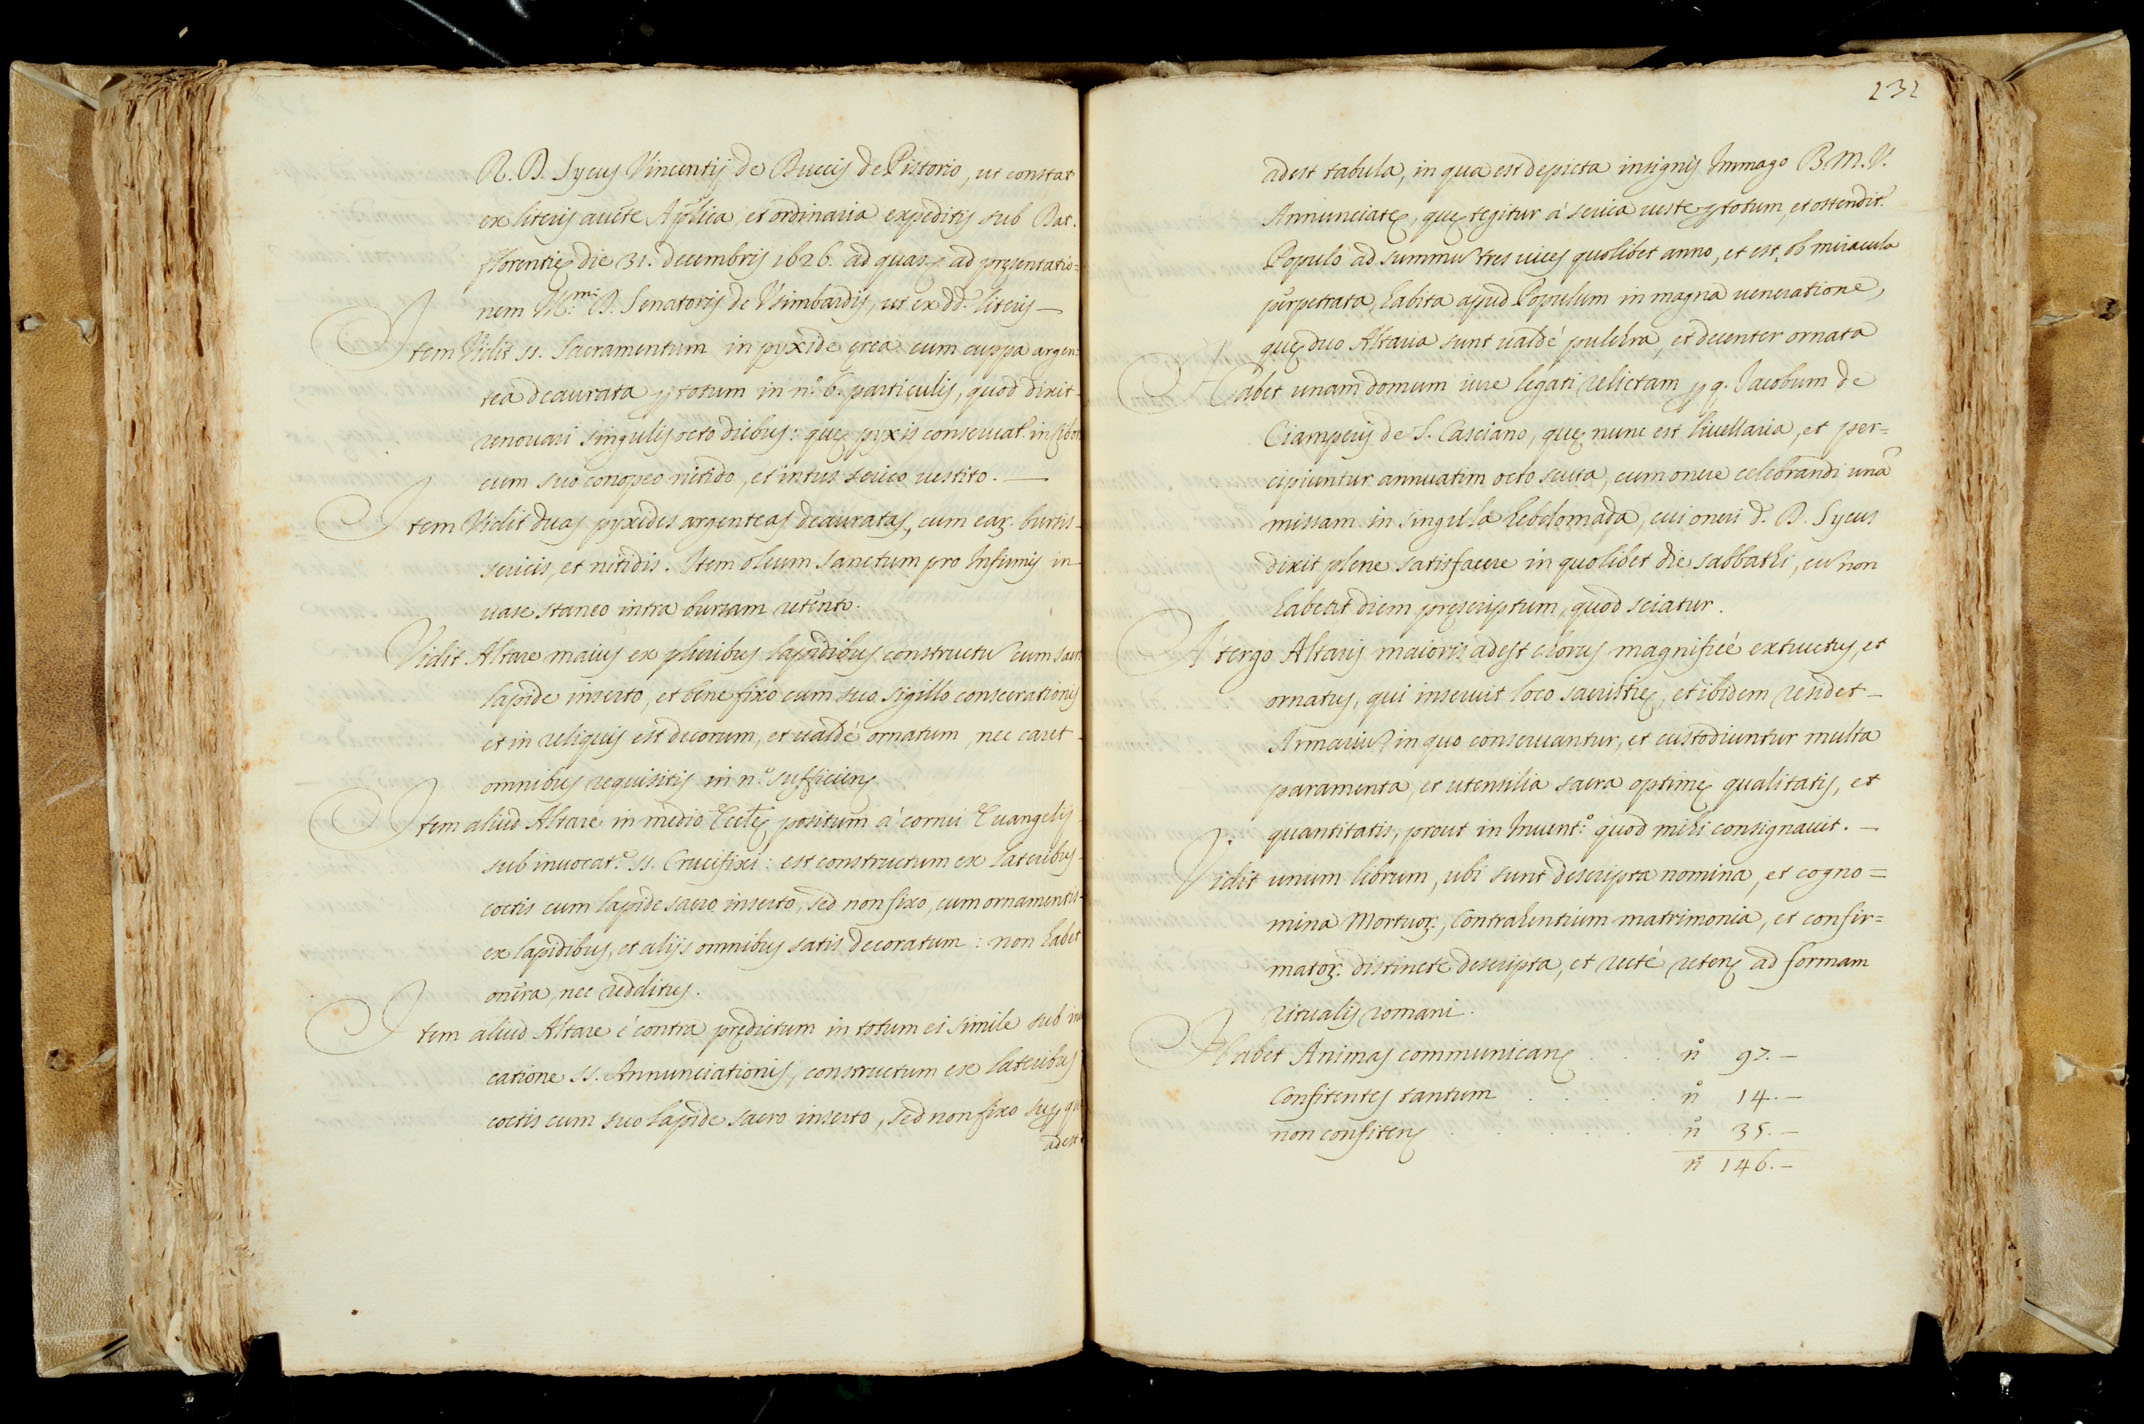 R. D. Sycus Vincentij de Buccis de Pistorio, ut constat
ex literis aucte Aplica, et ordinaria expeditis sub Dat.
florentię die 31. decembris 1626. ad quas, ad pręsentatio=
nem Ill.mi D. Senatoris de Usimbardis, ut ex dd. literis —
Item Vidit ss. Sacramentum in pyxide ęrea cum cuppa argen=
tea deaurata p totum in n.o 6. particulis, quod dixit
renovari singulis octo diebus: quę pyxis conservat. in Cibor
cum suo conopeo nitido, et intus serico vestito. —
Item Vidit duas pyxides argenteas deauratas, cum eaz. bursis
sericis, et nitidis. Item oleum sanctum pro Infirmis in
vase staneo intra bursam retento.
Vidit Altare maius ex pluribus lapidibus constructu cum sacr
lapide inserto, et bene fixo cum suo sigillo consecrationis
et in reliquis est decorum, et valdè ornatum, nec caret
omnibus requisitis in n.o sufficienę
Item aliud Altare in medio Ecclę positum à cornu Evangelij
sub invocat.e ss. Crucifixi: est constructum ex lateribus
coctis cum lapide sacro inserto, sed non fixo, cum ornamentis
ex lapidibus, et alijs omnibus satis decoratum: non habet
onera, nec redditus.
Item aliud Altare è contra prędictum in totum ei simile sub inv
catione ss. Annunciationis, constructum ex lateribus
coctis cum suo lapide sacro inserto, sed non fixo sup quo
adest
232
adest tabula, in qua est depicta insignis Immago B. M. V.
Annunciatę, quę tegitur à serica veste p totum, et ostendit.
Populo ad summu tres vices quolibet anno, et est, ob miracula
perpetrata, habita apud Populum in magna veneratione,
quę duo Altaria sunt valdé pulchra, et decenter ornata
Habet unam domum iure legati relictam p q. Jacobum de
Ciamperis de S. Casciano, quę nunc est livellaria, et per=
cipiuntur annuatim octo scuta, cum onere celebrandi unã
missam in singula hebdomada, cui oneri d. D. Sycus
dixit plene satisfacere in quolibet die sabbathi, cu non
habeat diem pręscriptum, quod sciatur.
A tergo Altaris maioris adest chorus magnificé extructus, et
ornatus, qui inservit loco sacristię, et ibidem videt
Armariu in quo conservantur, et custodiuntur multa
paramenta, et utensilia sacra optimę qualitatis, et
quantitatis, prout in Invent.o quod mihi consignavit. —
Vidit unum librum, ubi sunt descripta nomina, et cogno=
mina Mortuoz., Contrahentium matrimonia, et confir=
matoz. distincte descripta, et recté retenę ad formam
ritualis romani.
Habet Animas communicanę . . . n.o 97. —
Confitentes tantum . . . . . n.o 14. —
non confitenę . . . . . . . n.o 35. —
n.o 146. —